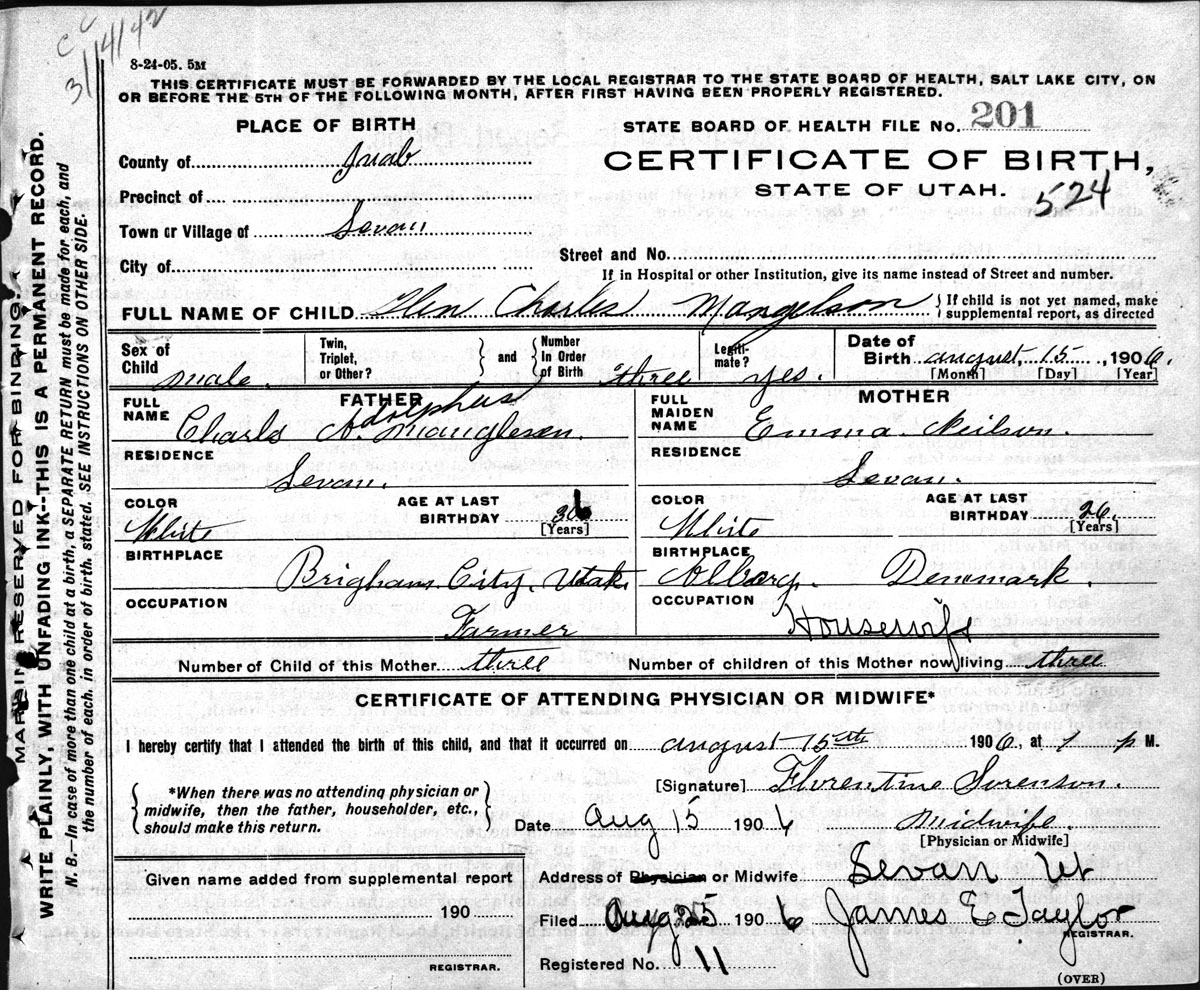 CC
3/14/42
8-24-05. 5M
THIS CERTIFICATE MUST BE FORWARDED BY THE LOCAL REGISTRAR TO THE STATE BOARD OF HEALTH, SALT LAKE CITY, ON
OR BEFORE THE 5TH OF THE FOLLOWING MONTH, AFTER FIRST HAVING BEEN PROPERLY REGISTERED.
PLACE OF BIRTH
STATE BOARD OF HEALTH FILE No. 201
County of Juab
CERTIFICATE OF BIRTH,
STATE OF UTAH. 524
Precinct of
Town or Village of Levan
Street and No.
City of
If in Hospital or other Institution, give its name instead of Street and number.
FULL NAME OF CHILD Glen Charles Mangelson { If child is not yet named, make
supplemental report, as directed
Sex of Child male.
Twin, Triplet, or Other? } and { Number In Order of Birth three
Legiti-mate? yes.
Date of Birth august, 15, 1906.
[Month] [Day] [Year]
FATHER
MOTHER
FULL NAME Charls A. Adolphus Mangleson.
FULL MAIDEN NAME Emma Neilson.
RESIDENCE Levan.
RESIDENCE Levan.
COLOR White AGE AT LAST BIRTHDAY 36 [Years]
COLOR White AGE AT LAST BIRTHDAY 26. [Years]
BIRTHPLACE Brigham City, Utah.
BIRTHPLACE Alborg. Denmark.
OCCUPATION Farmer
OCCUPATION Housewife
Number of Child of this Mother three
Number of children of this Mother now living three
CERTIFICATE OF ATTENDING PHYSICIAN OR MIDWIFE*
I hereby certify that I attended the birth of this child, and that it occurred on august 15th 1906, at 1 p M.
[Signature] Florentine Sorenson.
{ *When there was no attending physician or
midwife, then the father, householder, etc.,
should make this return. }
Date Aug 15 1906 midwife.
[Physician or Midwife]
Given name added from supplemental report
190
REGISTRAR.
Address of Physician or Midwife Levan Ut
Filed Aug 25 1906 James E Taylor
REGISTRAR.
Registered No. 11
(OVER)
MARGIN RESERVED FOR BINDING.
WRITE PLAINLY, WITH UNFADING INK--THIS IS A PERMANENT RECORD.
N. B.—In case of more than one child at a birth, a SEPARATE RETURN must be made for each, and
the number of each, in order of birth, stated. SEE INSTRUCTIONS ON OTHER SIDE.